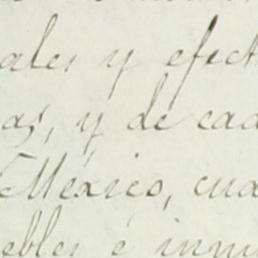 ales y efect
as, y de cad
México, cua
ebles é inmu